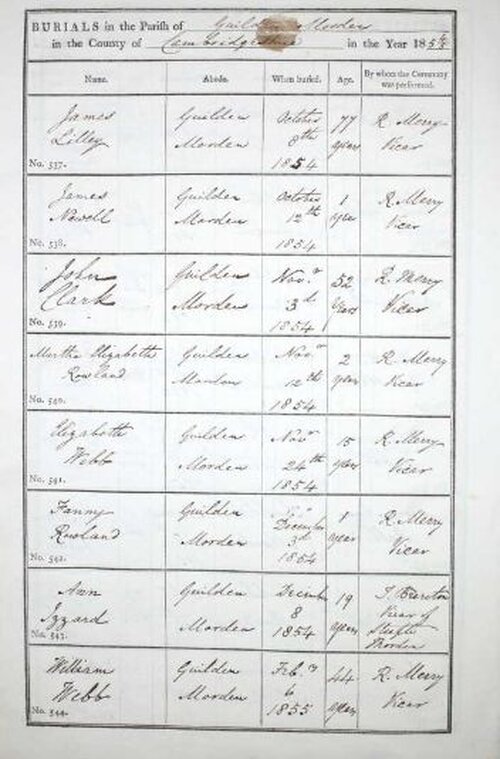 BURIALS in the Parish of Guilden Morden
in the County of Cambridgeshire in the Year 185 4/5
Name. Abode. When buried. Age. By whom the Ceremony was performed.
James Guilden October 77 R Merry
Lilley Morden 8th years Vicar
No. 537. 1854
James Guilden October 1 R Merry
Nowell Morden 12th year Vicar
No. 538. 1854
John Guilden Nov.r 52 R. Merry
Clark Morden 3d Years Vicar
No. 539. 1854
Martha Elizabeth Guilden Nov.r 2 R. Merry
Rowland Morden 12th years Vicar
No. 540. 1854
Elizabeth Guilden Novr 15 R Merry
Webb Morden 24th years Vicar
No. 541. 1854
Fanny Guilden December 1 R Merry
Rowland Morden 3d year Vicar
No. 542. 1854
Ann Guilden Decembr 19 Vicar of
Izzard Morden 8 years Steeple
No. 543. 1854 Morden
William Guilden Feb.ry 44 R. Merry
Webb Morden 6 years Vicar
No. 544. 1855